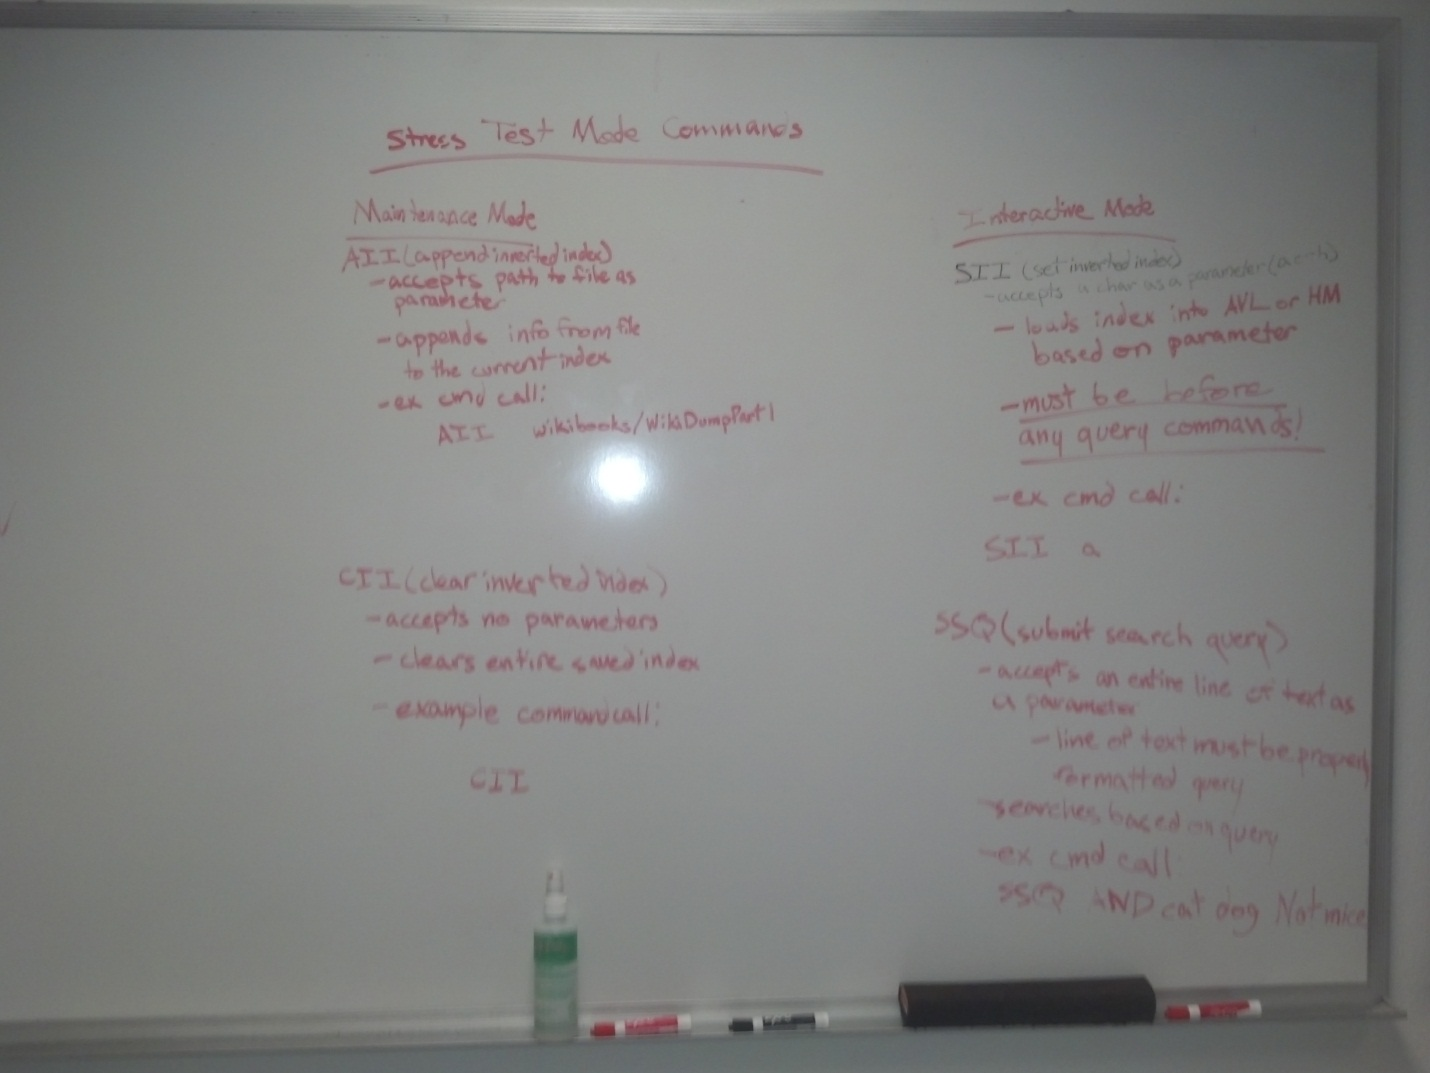 Stress Test Mode Commands
Maintenance Mode
AII (append inverted index)
- accepts path to file as
parameter
- appends info from file
to the current index
- ex cmd call:
AII wikibooks/WikiDumpPart1
CII (clear inverted index)
- accepts no parameters
- clears entire saved index
- example command call:
CII
Interactive Mode
SII (set inverted index)
- accepts a char as a parameter (a or h)
- loads index into AVL or HM
based on parameter
- must be before
any query commands!
- ex cmd call:
SII a
SSQ (submit search query)
- accepts an entire line of text as
a parameter
- line of text must be properly
formatted query
- searches based on query
- ex cmd call
SSQ AND cat dog Not mice